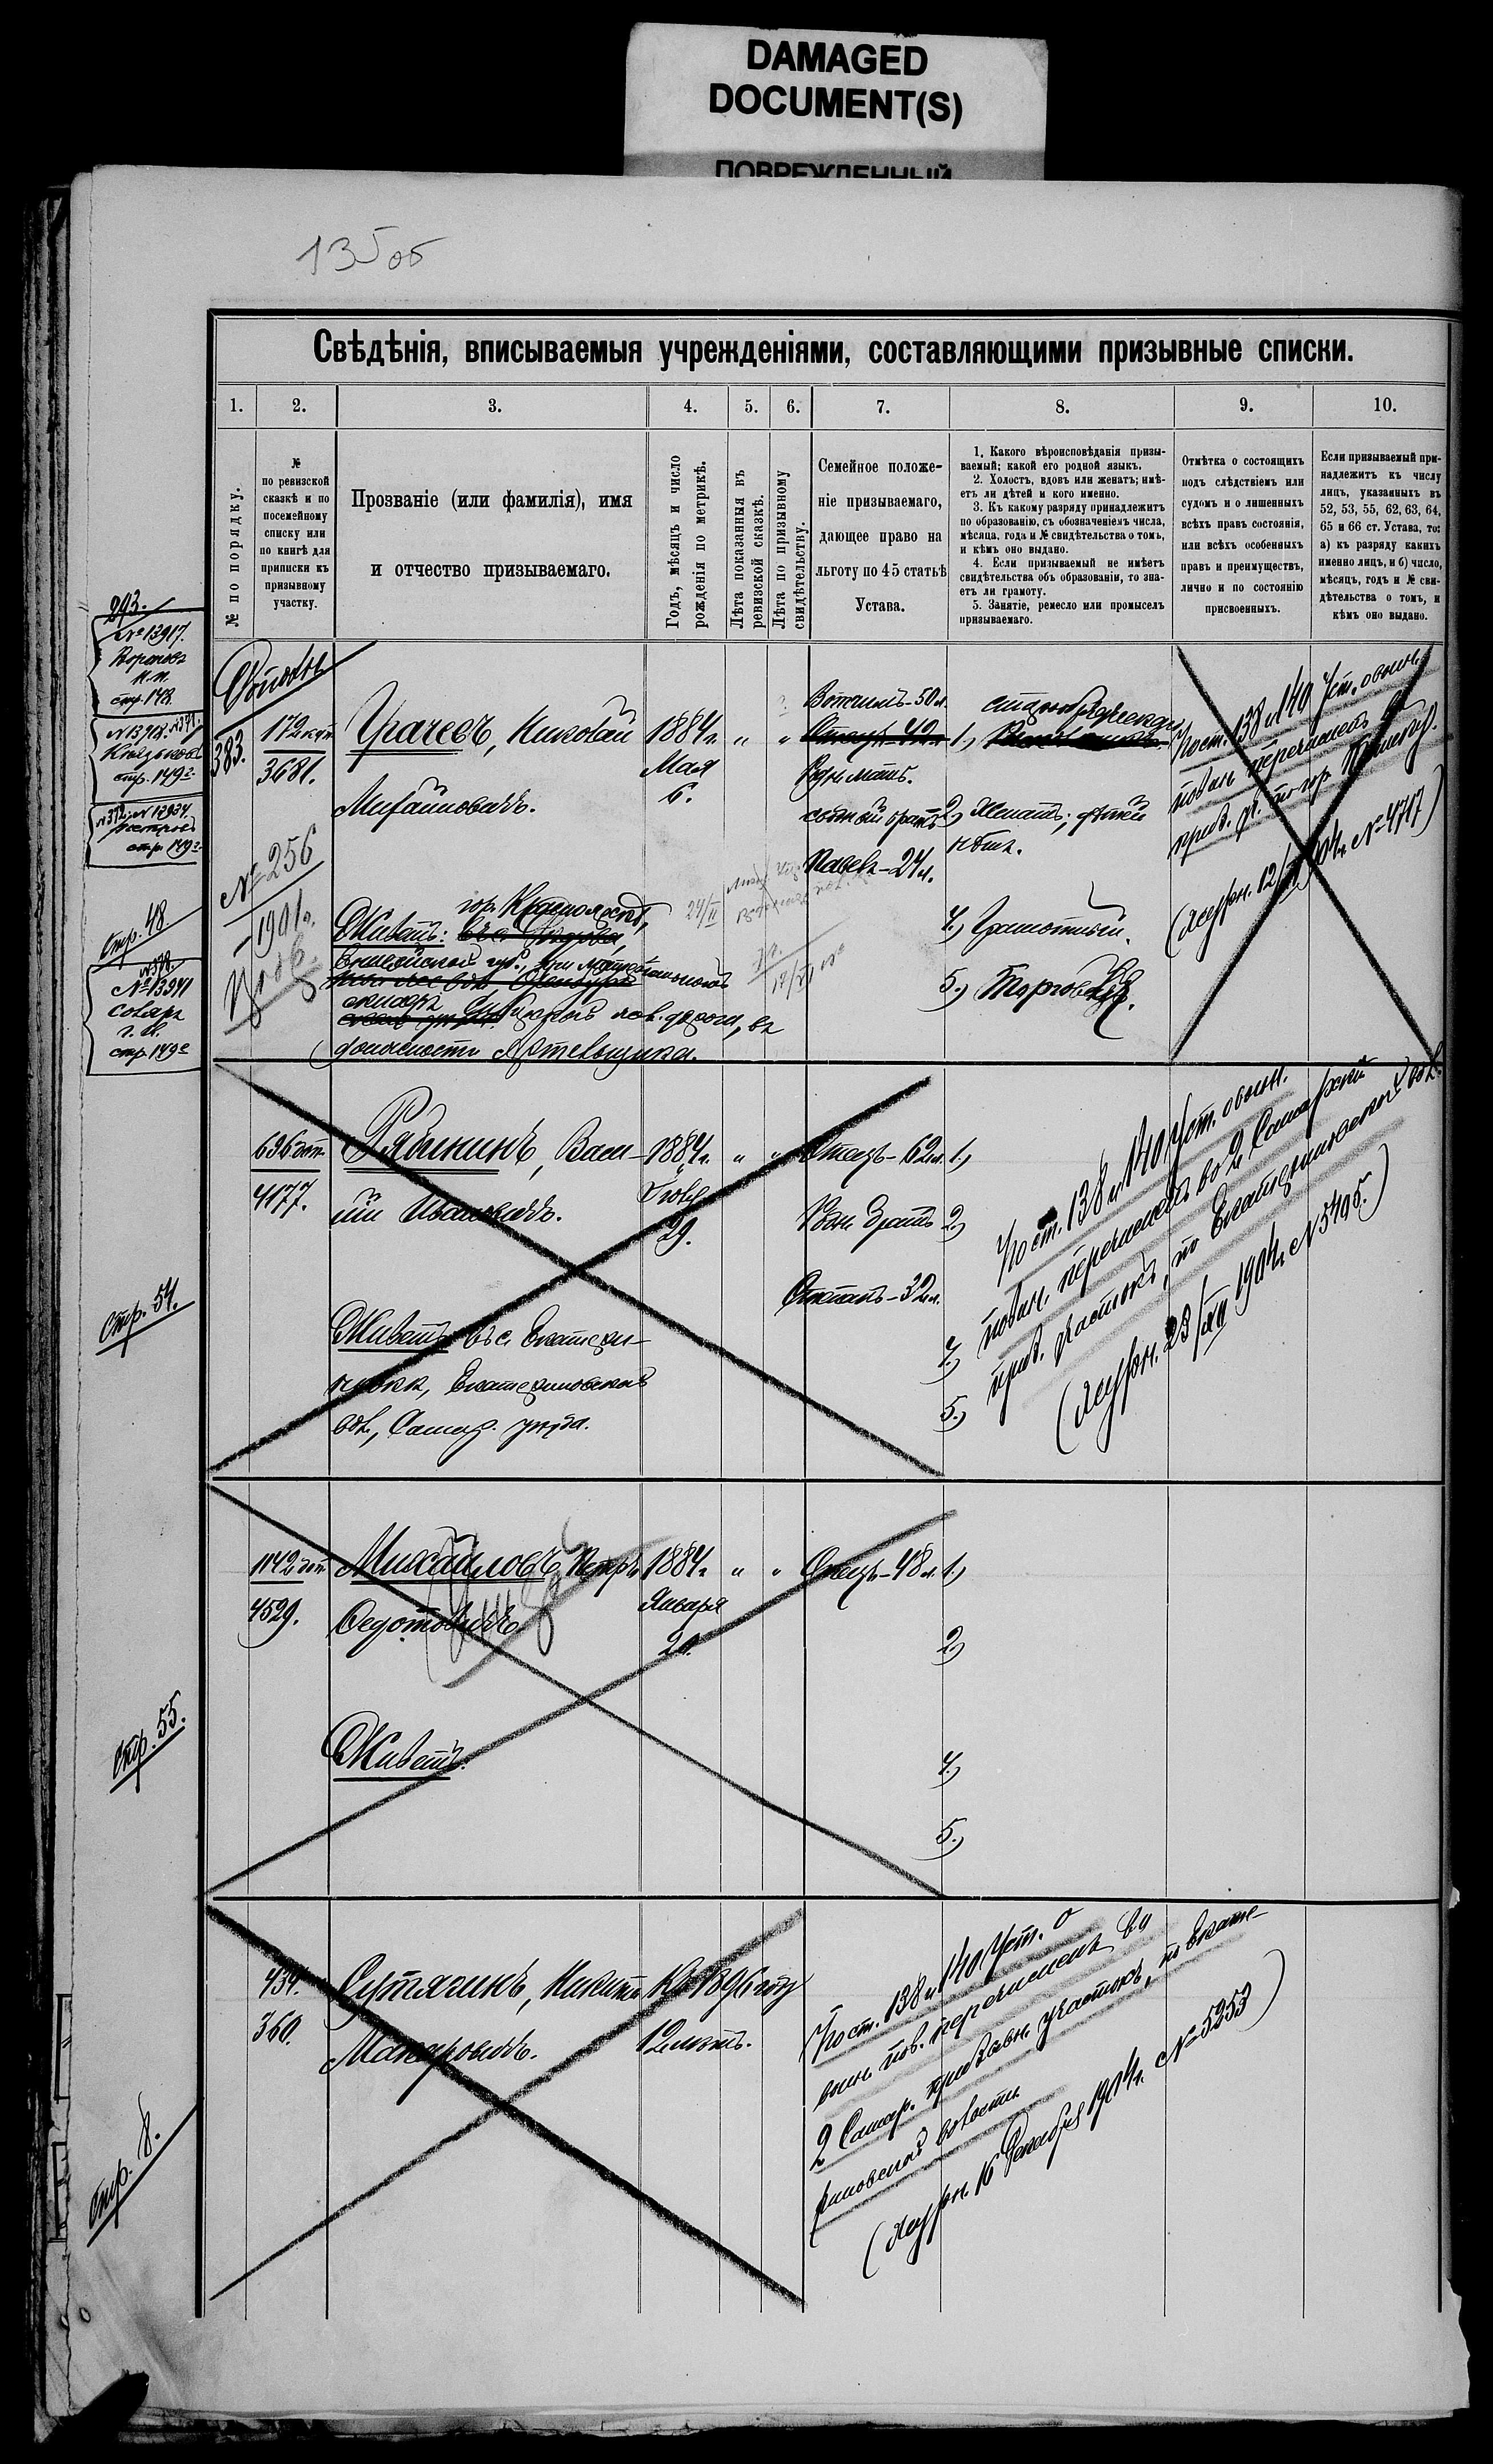 DAMAGED
DOCUMENT(S)
ПОВРЕЖДЕННЫЙ
135об
Свѣдѣнія, вписываемыя учрежденіями, составляющими призывные списки.
1. 2. 3. 4. 5. 6. 7. 8. 9. 10.
№ по порядку.
№
по ревизской
сказкѣ и по
посемейному
списку или
по книгѣ для
приписки къ
призывному
участку.
Прозваніе (или фамилія), имя
и отчество призываемаго.
Годъ, мѣсяцъ и число
рожденія по метрикѣ.
Лѣта показанныя въ
ревизской сказкѣ.
Лѣта по призывному
свидѣтельству.
Семейное положе-
ніе призываемаго,
дающее право на
льготу по 45 статьѣ
Устава.
1. Какого вѣроисповѣданія призы-
ваемый; какой его родной языкъ.
2. Холостъ, вдовъ или женатъ; имѣ-
етъ ли дѣтей и кого именно.
3. Къ какому разряду принадлежитъ
по образованію, съ обозначеніемъ числа,
мѣсяца, года и № свидѣтельства о томъ,
и кѣмъ оно выдано.
4. Если призываемый не имѣетъ
свидѣтельства объ образованіи, то зна-
етъ ли грамоту.
5. Занятіе, ремесло или промыселъ
призываемаго.
Отмѣтка о состоящихъ
подъ слѣдствіемъ или
судомъ и о лишенныхъ
всѣхъ правъ состоянія,
или всѣхъ особенныхъ
правъ и преимуществъ,
лично и по состоянію
присвоенныхъ.
Если призываемый при-
надлежитъ къ числу
лицъ, указанныхъ въ
52, 53, 55, 62, 63, 64,
65 и 66 ст. Устава, то:
а) къ разряду какихъ
именно лицъ, и б) число,
мѣсяцъ, годъ и № сви-
дѣтельства о томъ, и
кѣмъ оно выдано.
293.
№ 13917.
стр. 148
№ 13918. №371.
стр. 149
№372. № 13934
стр. 149
Стр. 48
№ 13941
стр. 149
383.
172
3681.
Грачевъ, Николай
Михайловичъ.
1884г.
Мая
6.
" "
Вотчимъ-50л.
Отецъ-42л.
Родн. мать.
братъ
Павелъ-24л.
1.)
2.) Женатъ; дѣтей
нѣтъ.
4.) Грамотный.
5.) Торговецъ.
По ст. 138 и 140 Уст. о воин.
повин. перечисленъ въ
приз. уч. по гор.
№ 4717)
№ 256
1901г.
Живетъ: гор. Красноярскъ,
Енисейской губ., при
Сибирской жел. дороги, въ
должности Артельщика.
Стр. 54.
696
4177.
Рябининъ, Васи-
лій Ивановичъ.
1884г.
29.
" "
Отецъ-62л.
Родн. братъ
Степанъ-32л.
1.)
2.)
4.)
5.)
Живетъ: въ с. Екатери-
новкѣ, Екатериновской
вол., Самар. уѣзда.
По ст. 138 и 140 Уст. о воин.
повин. перечисленъ во 2 Самарскій
приз. участокъ, по Екатериновской вол.
(Журн. 28/XII 1904г. № 5495.)
Стр. 55.
1142
4529.
Михайловъ, Петръ
Федотовичъ
1884г.
Января
" "
Отецъ-48л.
1.)
2.)
4.)
5.)
Живетъ:
Стр. 8.
434.
360.
Сутягинъ, Никита
Макаровичъ.
Къ 1896 году
12 лѣтъ.
По ст. 138 и 140 Уст. о
воин. пов. перечисленъ во
2 Самар. призывн. участокъ, по Екате-
риновской волости
(Журн. 16 Декабря 1904г. № 5253)